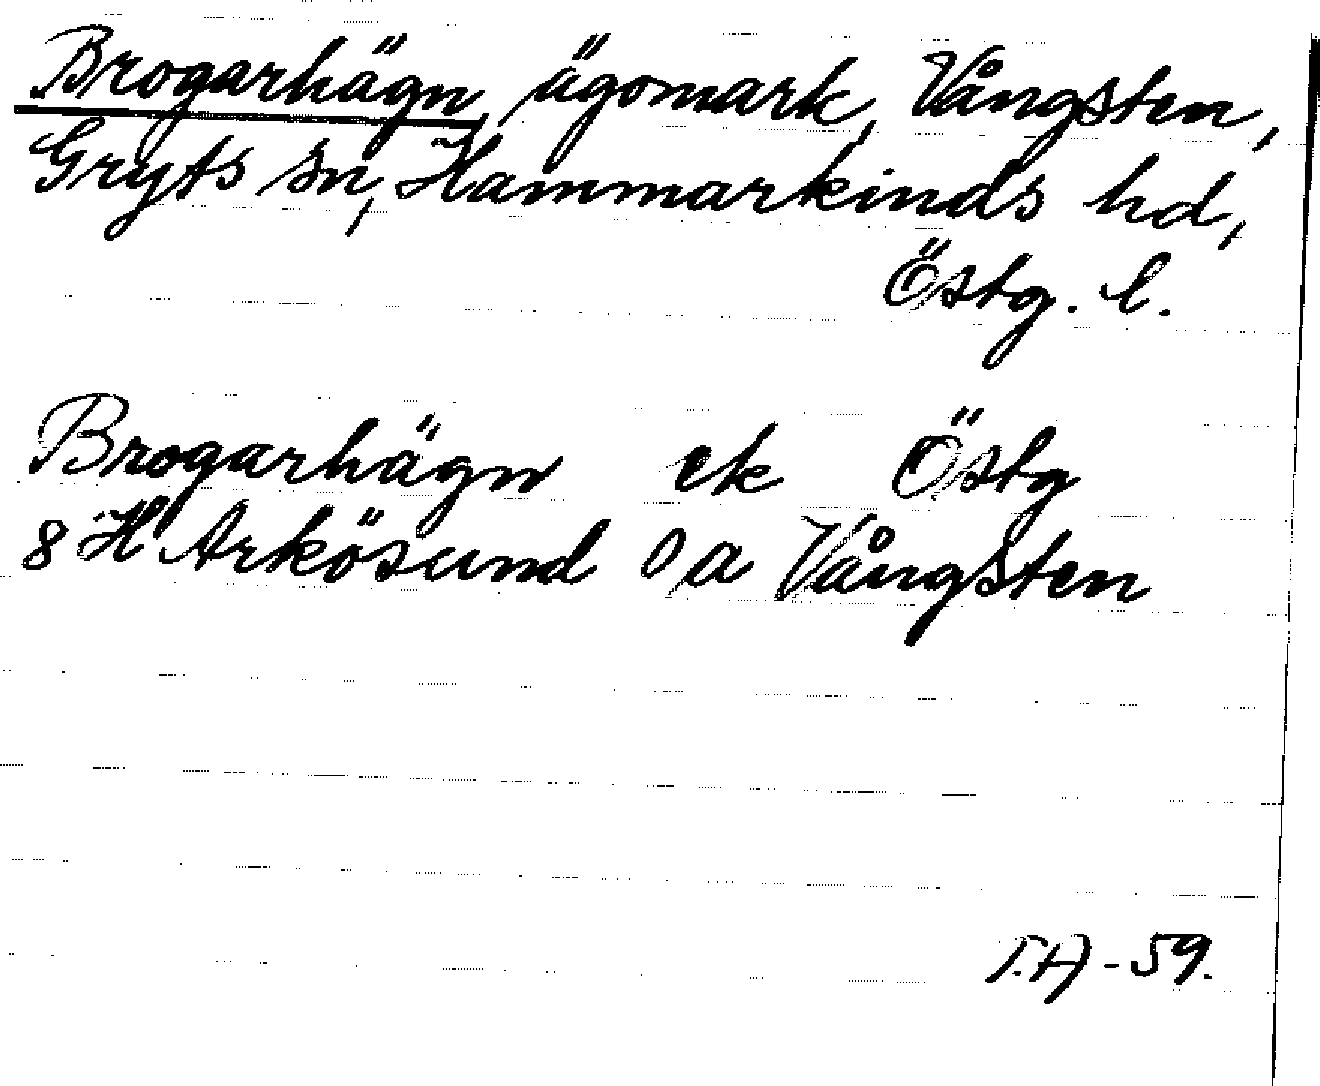 Brogarhägn, ägomark, Vångsten,
Gryts sn, Hammarkinds hd,
Östg. l.
Brogarhägn ek Östg
8 H Arkösund Oa Vångsten
T.A-59.